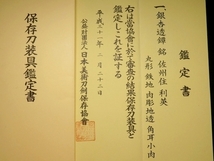 鑑定書
一、銀杏透鐔 銘 佐州住 利英
丸形 鉄地 肉彫地透 角耳小肉
右は当協会に於て審査の結果保存刀装具と
鑑定しこれを証する
平成二十一年 二月二十三日
公益財団法人 日本美術刀剣保存協会
保存刀装具鑑定書